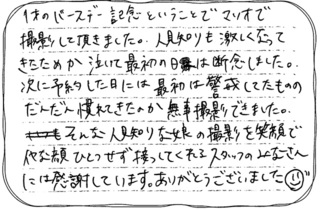 1才のバースデー記念ということでマリオで
撮影して頂きました。人見知りも激しくなって
きたためか泣いて最初の日は断念しました。
次に予約した日には最初は警戒してたものの
だんだん慣れてきたのか無事撮影できました。
そんな人見知りな娘の撮影を笑顔で
嫌な顔ひとつせず接してくれるスタッフのみなさん
には感謝しています。ありがとうございました